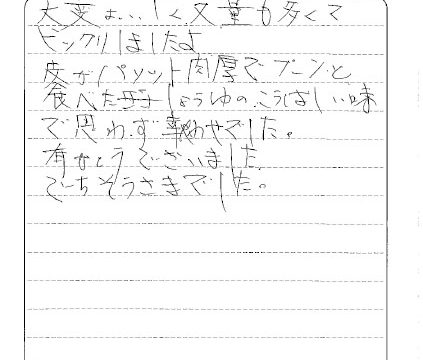 大変おいしく又量も多くて
ビックリしましたよ
皮がパリット肉厚でプーンと
食べたしょうゆのこうばしい味
で思わず幸わせでした。
有がとうございました
ごちそうさまでした。